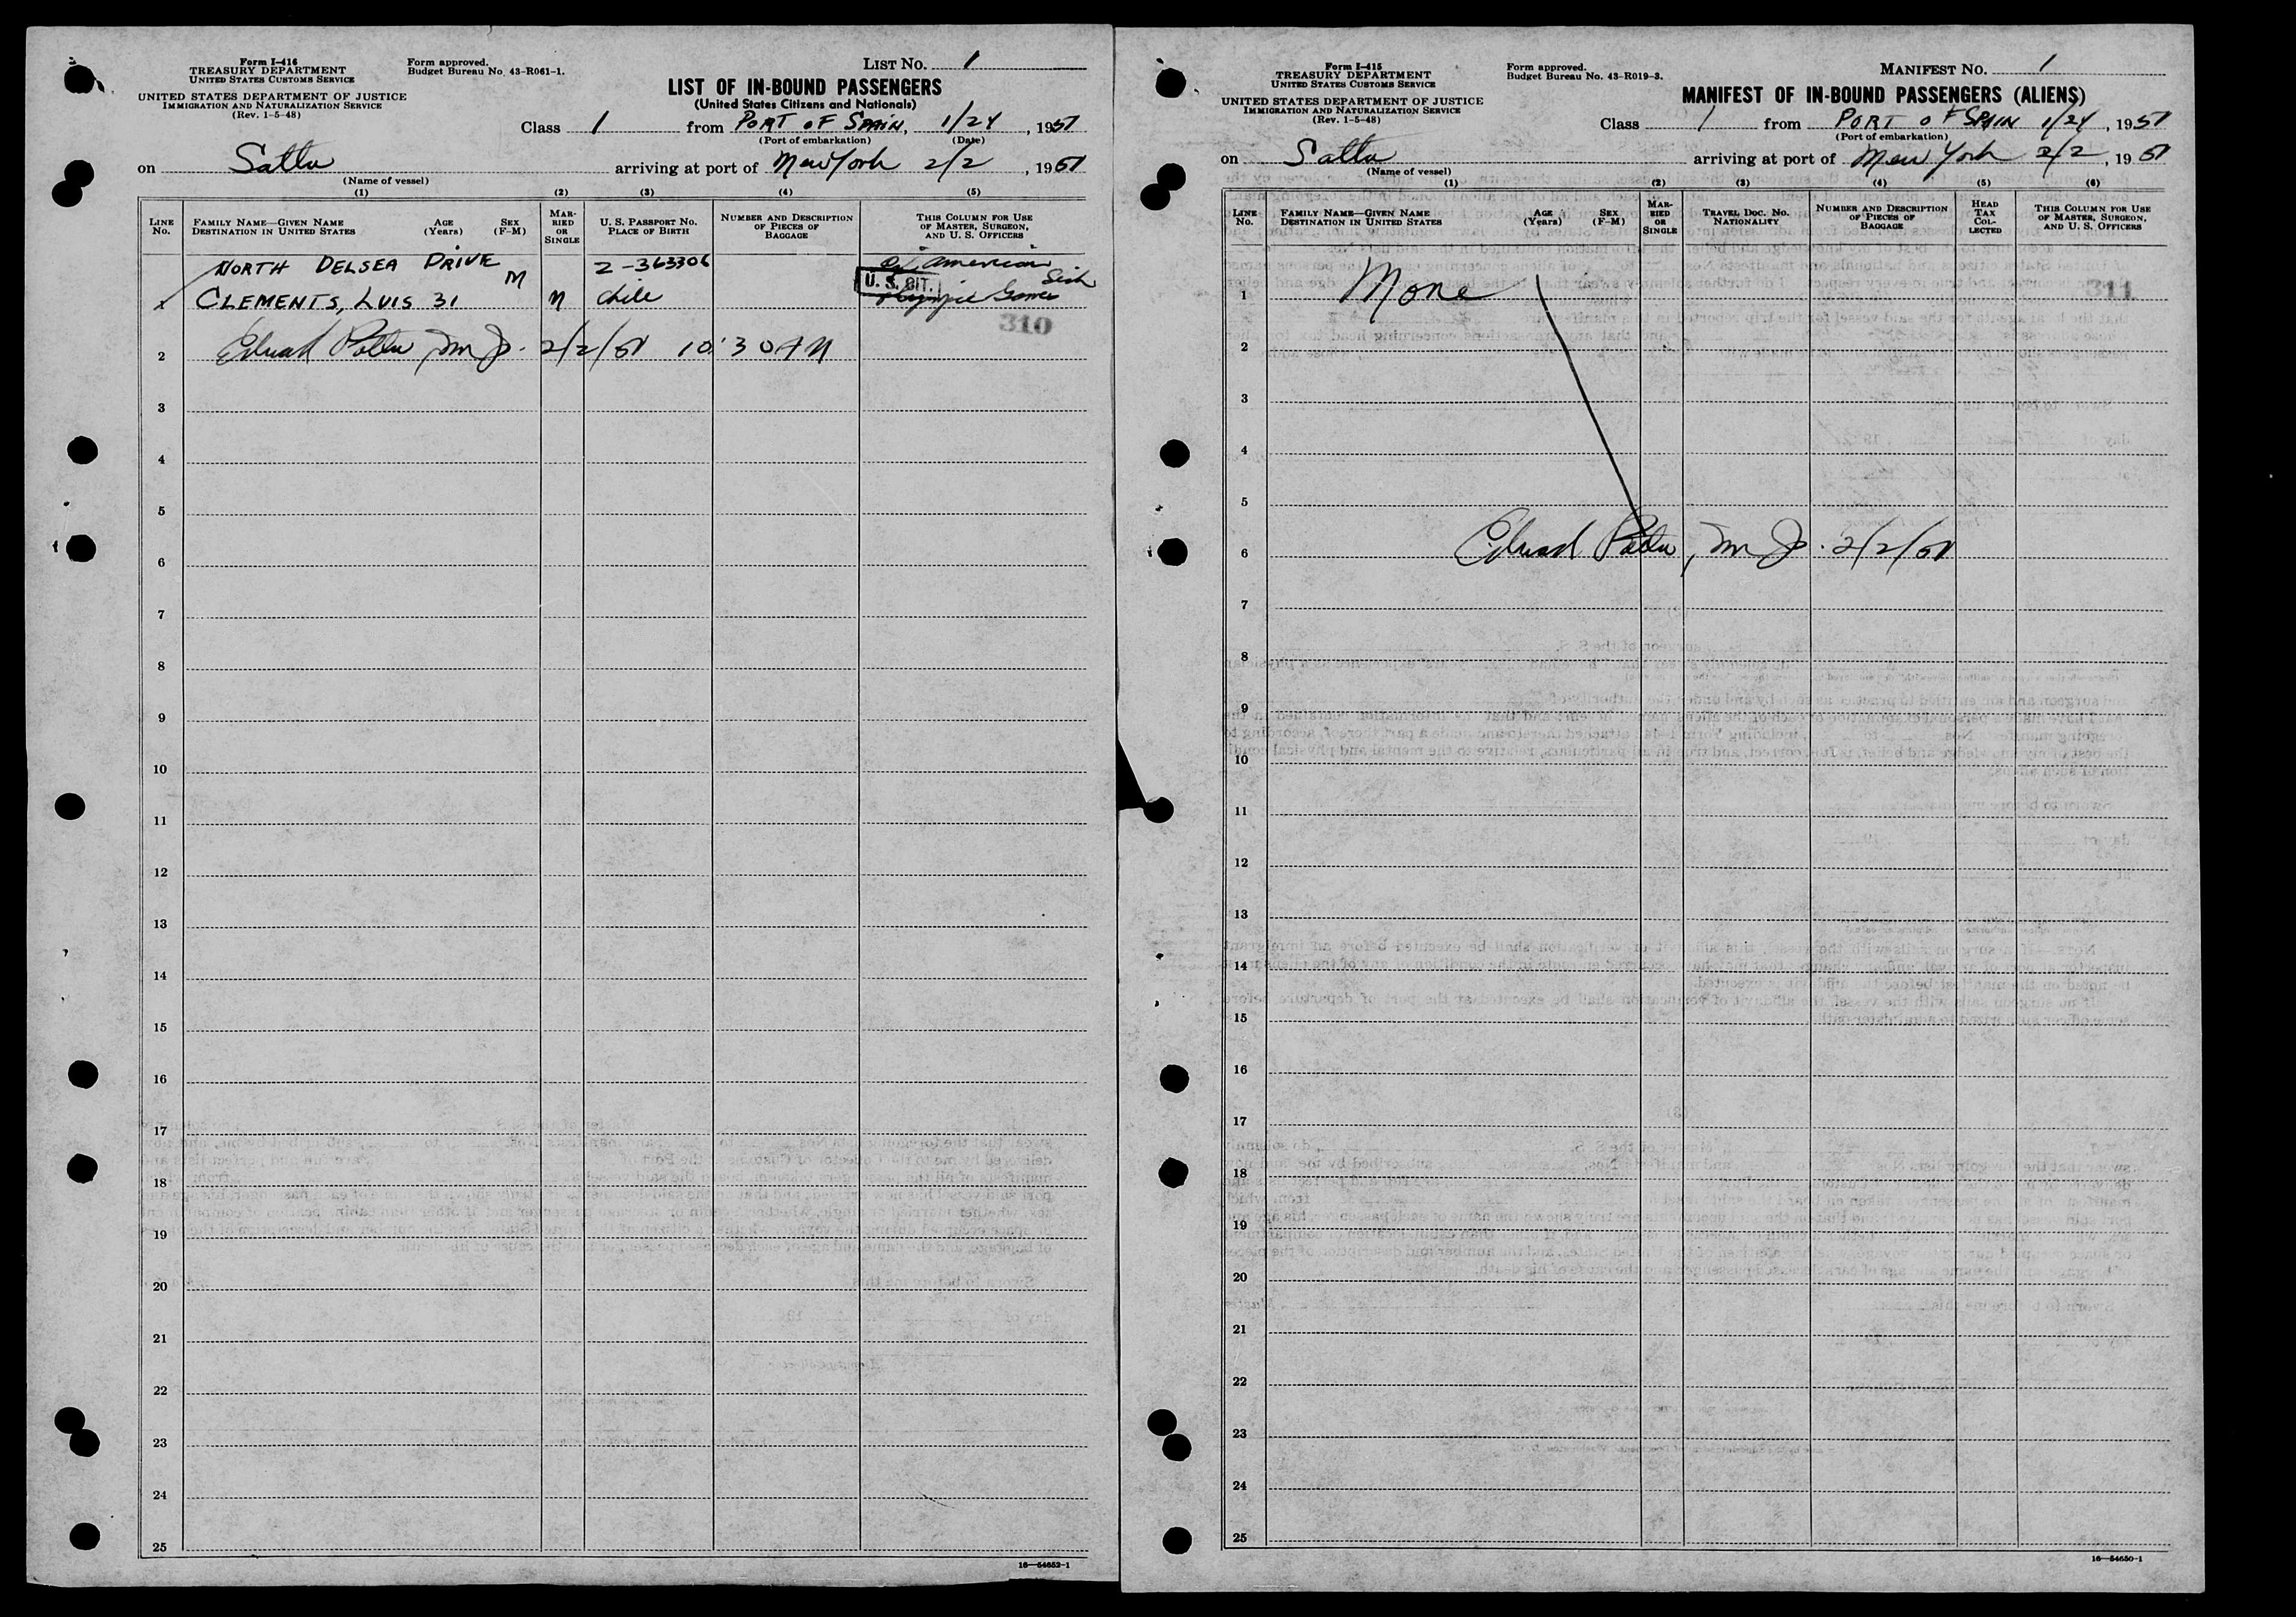 Form I-416
TREASURY DEPARTMENT
UNITED STATES CUSTOMS SERVICE
UNITED STATES DEPARTMENT OF JUSTICE
IMMIGRATION AND NATURALIZATION SERVICE
(Rev. 1-5-48)
Form approved.
Budget Bureau No. 43-R061-1.
LIST No. 1
LIST OF IN-BOUND PASSENGERS
(United States Citizens and Nationals)
Class 1 from PORT OF SPAIN, 1/24, 1951
(Port of embarkation) (Date)
on Satta arriving at port of New York 2/2, 1951
(Name of vessel)
(1) (2) (3) (4) (5)
LINE No.
FAMILY NAME—GIVEN NAME
DESTINATION IN UNITED STATES
AGE (Years)
SEX (F-M)
MARRIED OR SINGLE
U. S. PASSPORT No.
PLACE OF BIRTH
NUMBER AND DESCRIPTION OF PIECES OF BAGGAGE
THIS COLUMN FOR USE OF MASTER, SURGEON, AND U. S. OFFICERS
NORTH DELSEA DRIVE 2-363306 American
CLEMENTS, LUIS 31 M M Chile U. S. CIT. Games
310
2 2/2/51 10:30 AM
3
4
5
6
7
8
9
10
11
12
13
14
15
16
17
18
19
20
21
22
23
24
25
16—54652-1
Form I-415
TREASURY DEPARTMENT
UNITED STATES CUSTOMS SERVICE
UNITED STATES DEPARTMENT OF JUSTICE
IMMIGRATION AND NATURALIZATION SERVICE
(Rev. 1-5-48)
Form approved.
Budget Bureau No. 43-R019-3.
MANIFEST No. 1
MANIFEST OF IN-BOUND PASSENGERS (ALIENS)
Class 1 from PORT OF SPAIN 1/24, 1951
(Port of embarkation)
on Satta arriving at port of New York 2/2, 1951
(Name of vessel)
(1) (2) (3) (4) (5) (6)
LINE No.
FAMILY NAME—GIVEN NAME
DESTINATION IN UNITED STATES
AGE (Years)
SEX (F-M)
MARRIED OR SINGLE
TRAVEL DOC. No.
NATIONALITY
NUMBER AND DESCRIPTION OF PIECES OF BAGGAGE
HEAD TAX COLLECTED
THIS COLUMN FOR USE OF MASTER, SURGEON, AND U. S. OFFICERS
1 None 311
2
3
4
5
6 2/2/51
7
8
9
10
11
12
13
14
15
16
17
18
19
20
21
22
23
24
25
16—54650-1